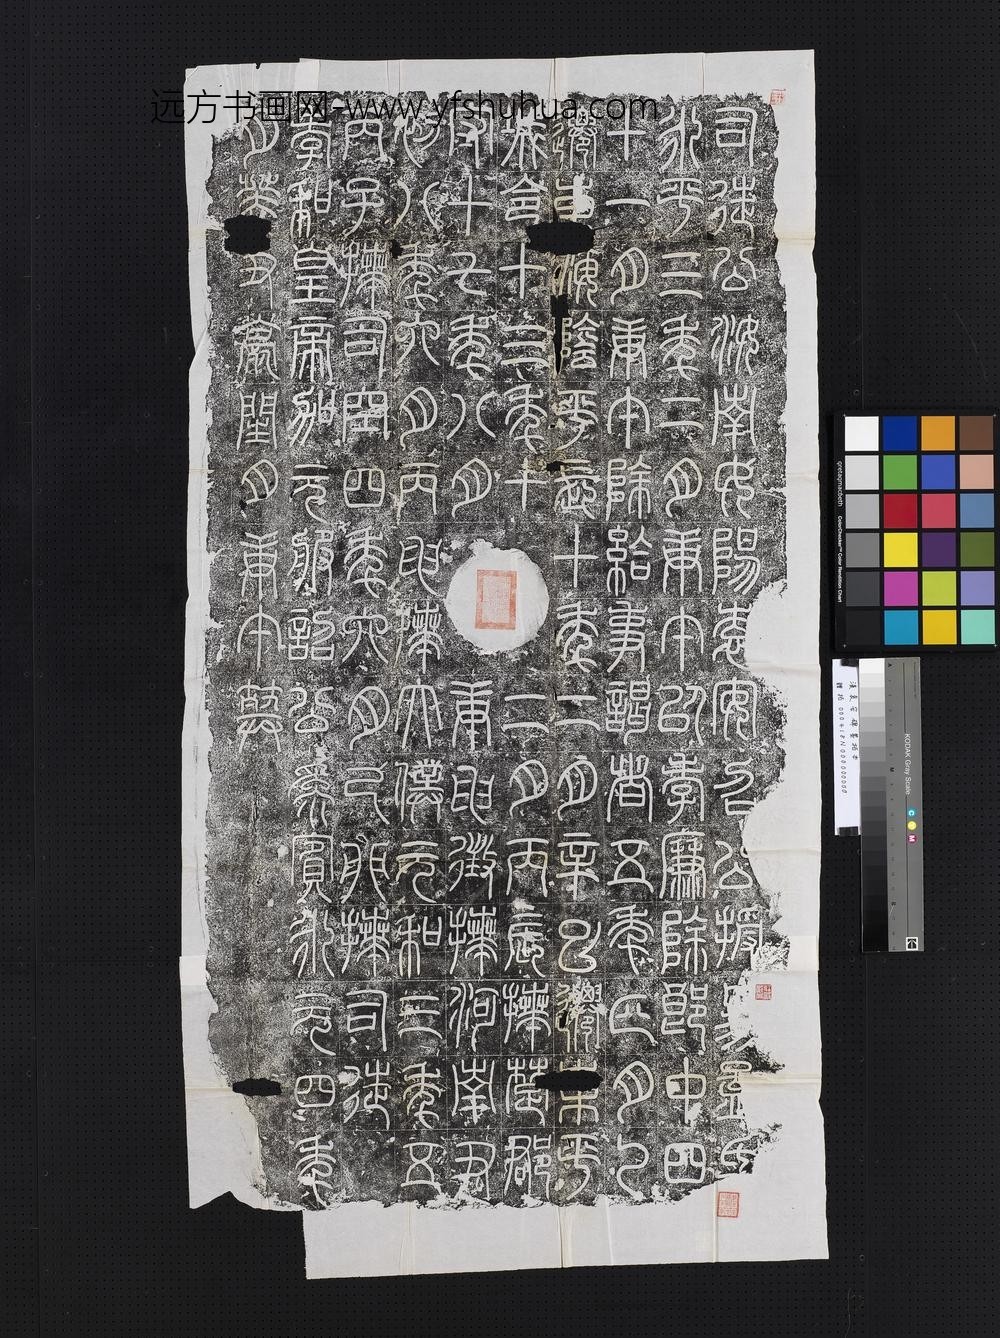 远方书画网-www.yfshuhua.com
司徒公汝南女陽袁安召公授易孟氏
永平三年二月庚午以孝廉除郎中四
十一月庚午除給事謁者五年正月乙
遷東海陰平長十年二月辛巳遷東平
城令十三年十二月丙辰拜楚郡
守十七年八月庚申徵拜河南尹
初八年六月丙申拜太僕元和三年五
丙子拜司空四年六月己卯拜司徒
孝和皇帝加元服詔公為賓永元四年
月癸丑薨閏月庚午葬
漢袁安碑墨拓本
KODAK Gray Scale
C
Y
M